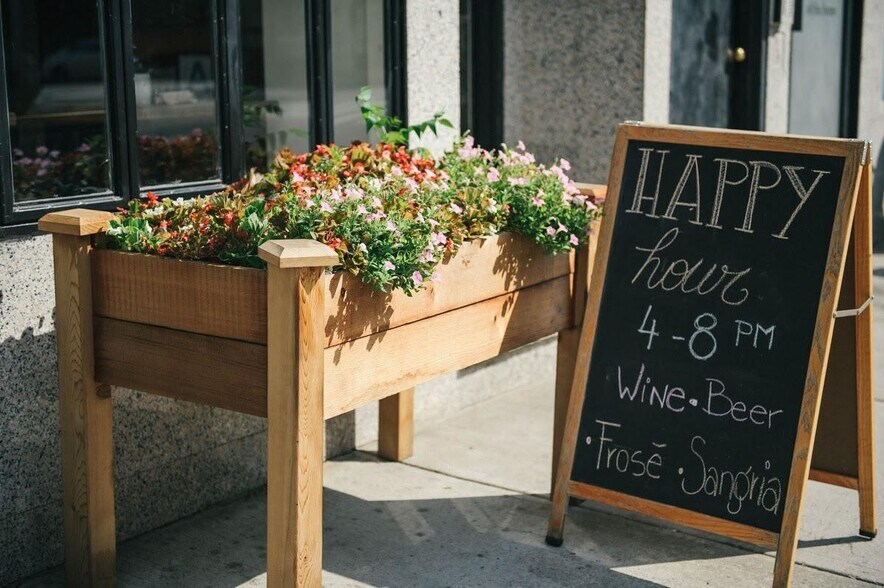 HAPPY
hour
4-8 PM
Wine • Beer
• Frosē • Sangria